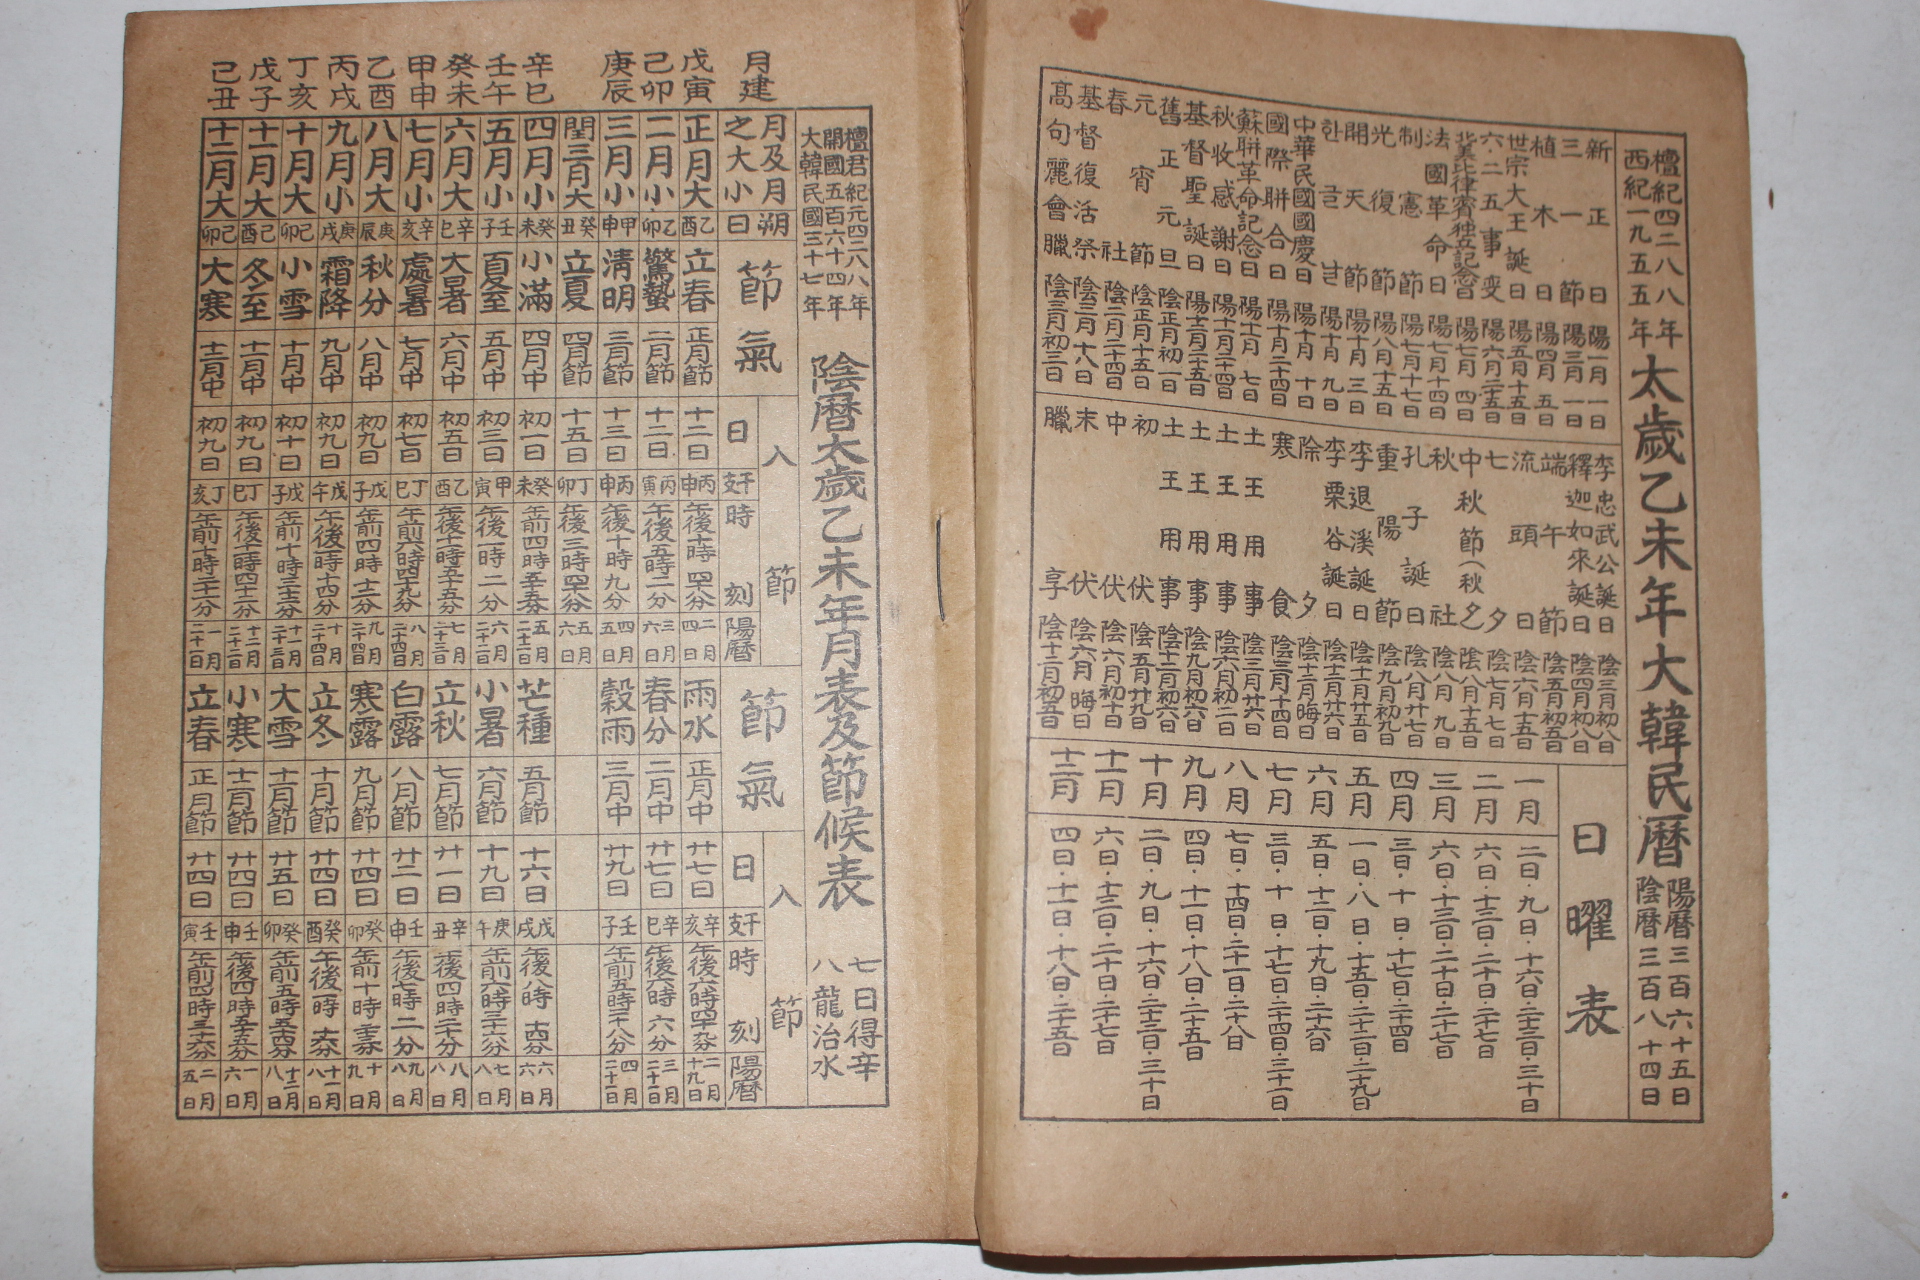 檀紀四二八八年
西紀一九五五年
太歲乙未年大韓民曆
陽曆三百六十五日
陰曆三百八十四日
新正日 陽一月一日
三一節 陽三月一日
植木日 陽四月五日
世宗大王誕日 陽五月十五日
六二五事变 陽六月二五日
比律賓独立記念日 陽七月四日
法國革命日 陽七月十四日
制憲節 陽七月十七日
光復節 陽八月十五日
開天節 陽十月三日
한글날 陽十月九日
中華民國國慶日 陽十月十日
國際聯合日 陽十月二十四日
蘇聯革命記念日 陽十一月七日
秋收感謝日 陽十一月二十四日
基督聖誕日 陽十二月二十五日
舊正元旦 陰正月初一日
元宵節 陰正月十五日
春社 陰二月二十四日
基督復活祭 陰三月十八日
高句麗會臘 陰三月初三日
李忠武公誕日 陰三月初八日
釋迦如來誕日 陰四月初八日
端午節 陰五月初五日
流頭日 陰六月十五日
七夕 陰七月七日
中秋節(秋夕) 陰八月十五日
秋社 陰八月九日
孔子誕日 陰八月廿七日
重陽節 陰九月初九日
李退溪誕日 陰十一月廿五日
李栗谷誕日 陰十二月廿六日
除夕 陰十二月晦日
寒食 陰三月十四日
土王用事 陰三月廿六日
土王用事 陰六月初二日
土王用事 陰九月初六日
土王用事 陰十二月初六日
初伏 陰五月廿九日
中伏 陰六月初十日
末伏 陰六月晦日
臘享 陰十二月初五日
日曜表
一月 二日·九日·十六日·二十三日·三十日
二月 六日·十三日·二十日·二十七日
三月 六日·十三日·二十日·二十七日
四月 三日·十日·十七日·二十四日
五月 一日·八日·十五日·二十二日·二十九日
六月 五日·十二日·十九日·二十六日
七月 三日·十日·十七日·二十四日·三十一日
八月 七日·十四日·二十一日·二十八日
九月 四日·十一日·十八日·二十五日
十月 二日·九日·十六日·二十三日·三十日
十一月 六日·十三日·二十日·二十七日
十二月 四日·十一日·十八日·二十五日
檀君紀元四二八八年
開國五百六十四年
大韓民國三十七年
陰曆太歲乙未年月表及節候表
七日得辛
八龍治水
月建 月及月之大小 朔日 節氣 入節 日 干支 時刻 陽曆 節氣 入節 日 干支 時刻 陽曆
戊寅 正月大 乙酉 立春 正月節 十二日 丙申 午後十時 二月四日 雨水 正月中 廿七日 辛亥 午後六時 二月十九日
己卯 二月小 乙卯 驚蟄 二月節 十二日 丙寅 午後五時二分 三月六日 春分 二月中 廿七日 辛巳 午後六時六分 三月二十一日
庚辰 三月小 甲申 清明 三月節 十三日 丙申 午後十時九分 四月五日 穀雨 三月中 廿九日 壬子 午前五時二十八分 四月二十一日
閏三月大 癸丑 立夏 四月節 十五日 丁卯 午後三時 五月六日
辛巳 四月小 癸未 小滿 四月中 初一日 癸未 午前四時 五月二十二日 芒種 五月節 十六日 戊戌 午後八時 六月六日
壬午 五月小 壬子 夏至 五月中 初三日 甲寅 午後一時二分 六月二十二日 小暑 六月節 十九日 庚午 午前六時三十六分 七月八日
癸未 六月大 辛巳 大暑 六月中 初五日 乙酉 午後十一時五十五分 七月二十三日 立秋 七月節 廿一日 辛丑 午後四時二十分 八月八日
甲申 七月小 辛亥 處暑 七月中 初七日 丁巳 午前六時四十九分 八月二十四日 白露 八月節 廿二日 壬申 午後七時二分 九月八日
乙酉 八月大 庚辰 秋分 八月中 初九日 戊子 午前四時十二分 九月二十四日 寒露 九月節 廿四日 癸卯 午前十時 十月九日
丙戌 九月小 庚戌 霜降 九月中 初九日 戊午 午後一時十四分 十月二十四日 立冬 十月節 廿四日 癸酉 午後一時 十一月八日
丁亥 十月大 己卯 小雪 十月中 初十日 戊子 午前十時三十三分 十一月二十三日 大雪 十一月節 廿五日 癸卯 午前五時五十四分 十二月八日
戊子 十一月大 己酉 冬至 十一月中 初九日 丁巳 午後十一時四十三分 十二月二十二日 小寒 十二月節 廿四日 壬申 午後四時五十五分 一月六日
己丑 十二月大 己卯 大寒 十二月中 初九日 丁亥 午前十時二十二分 一月二十一日 立春 正月節 廿四日 壬寅 午前四時三十六分 二月五日